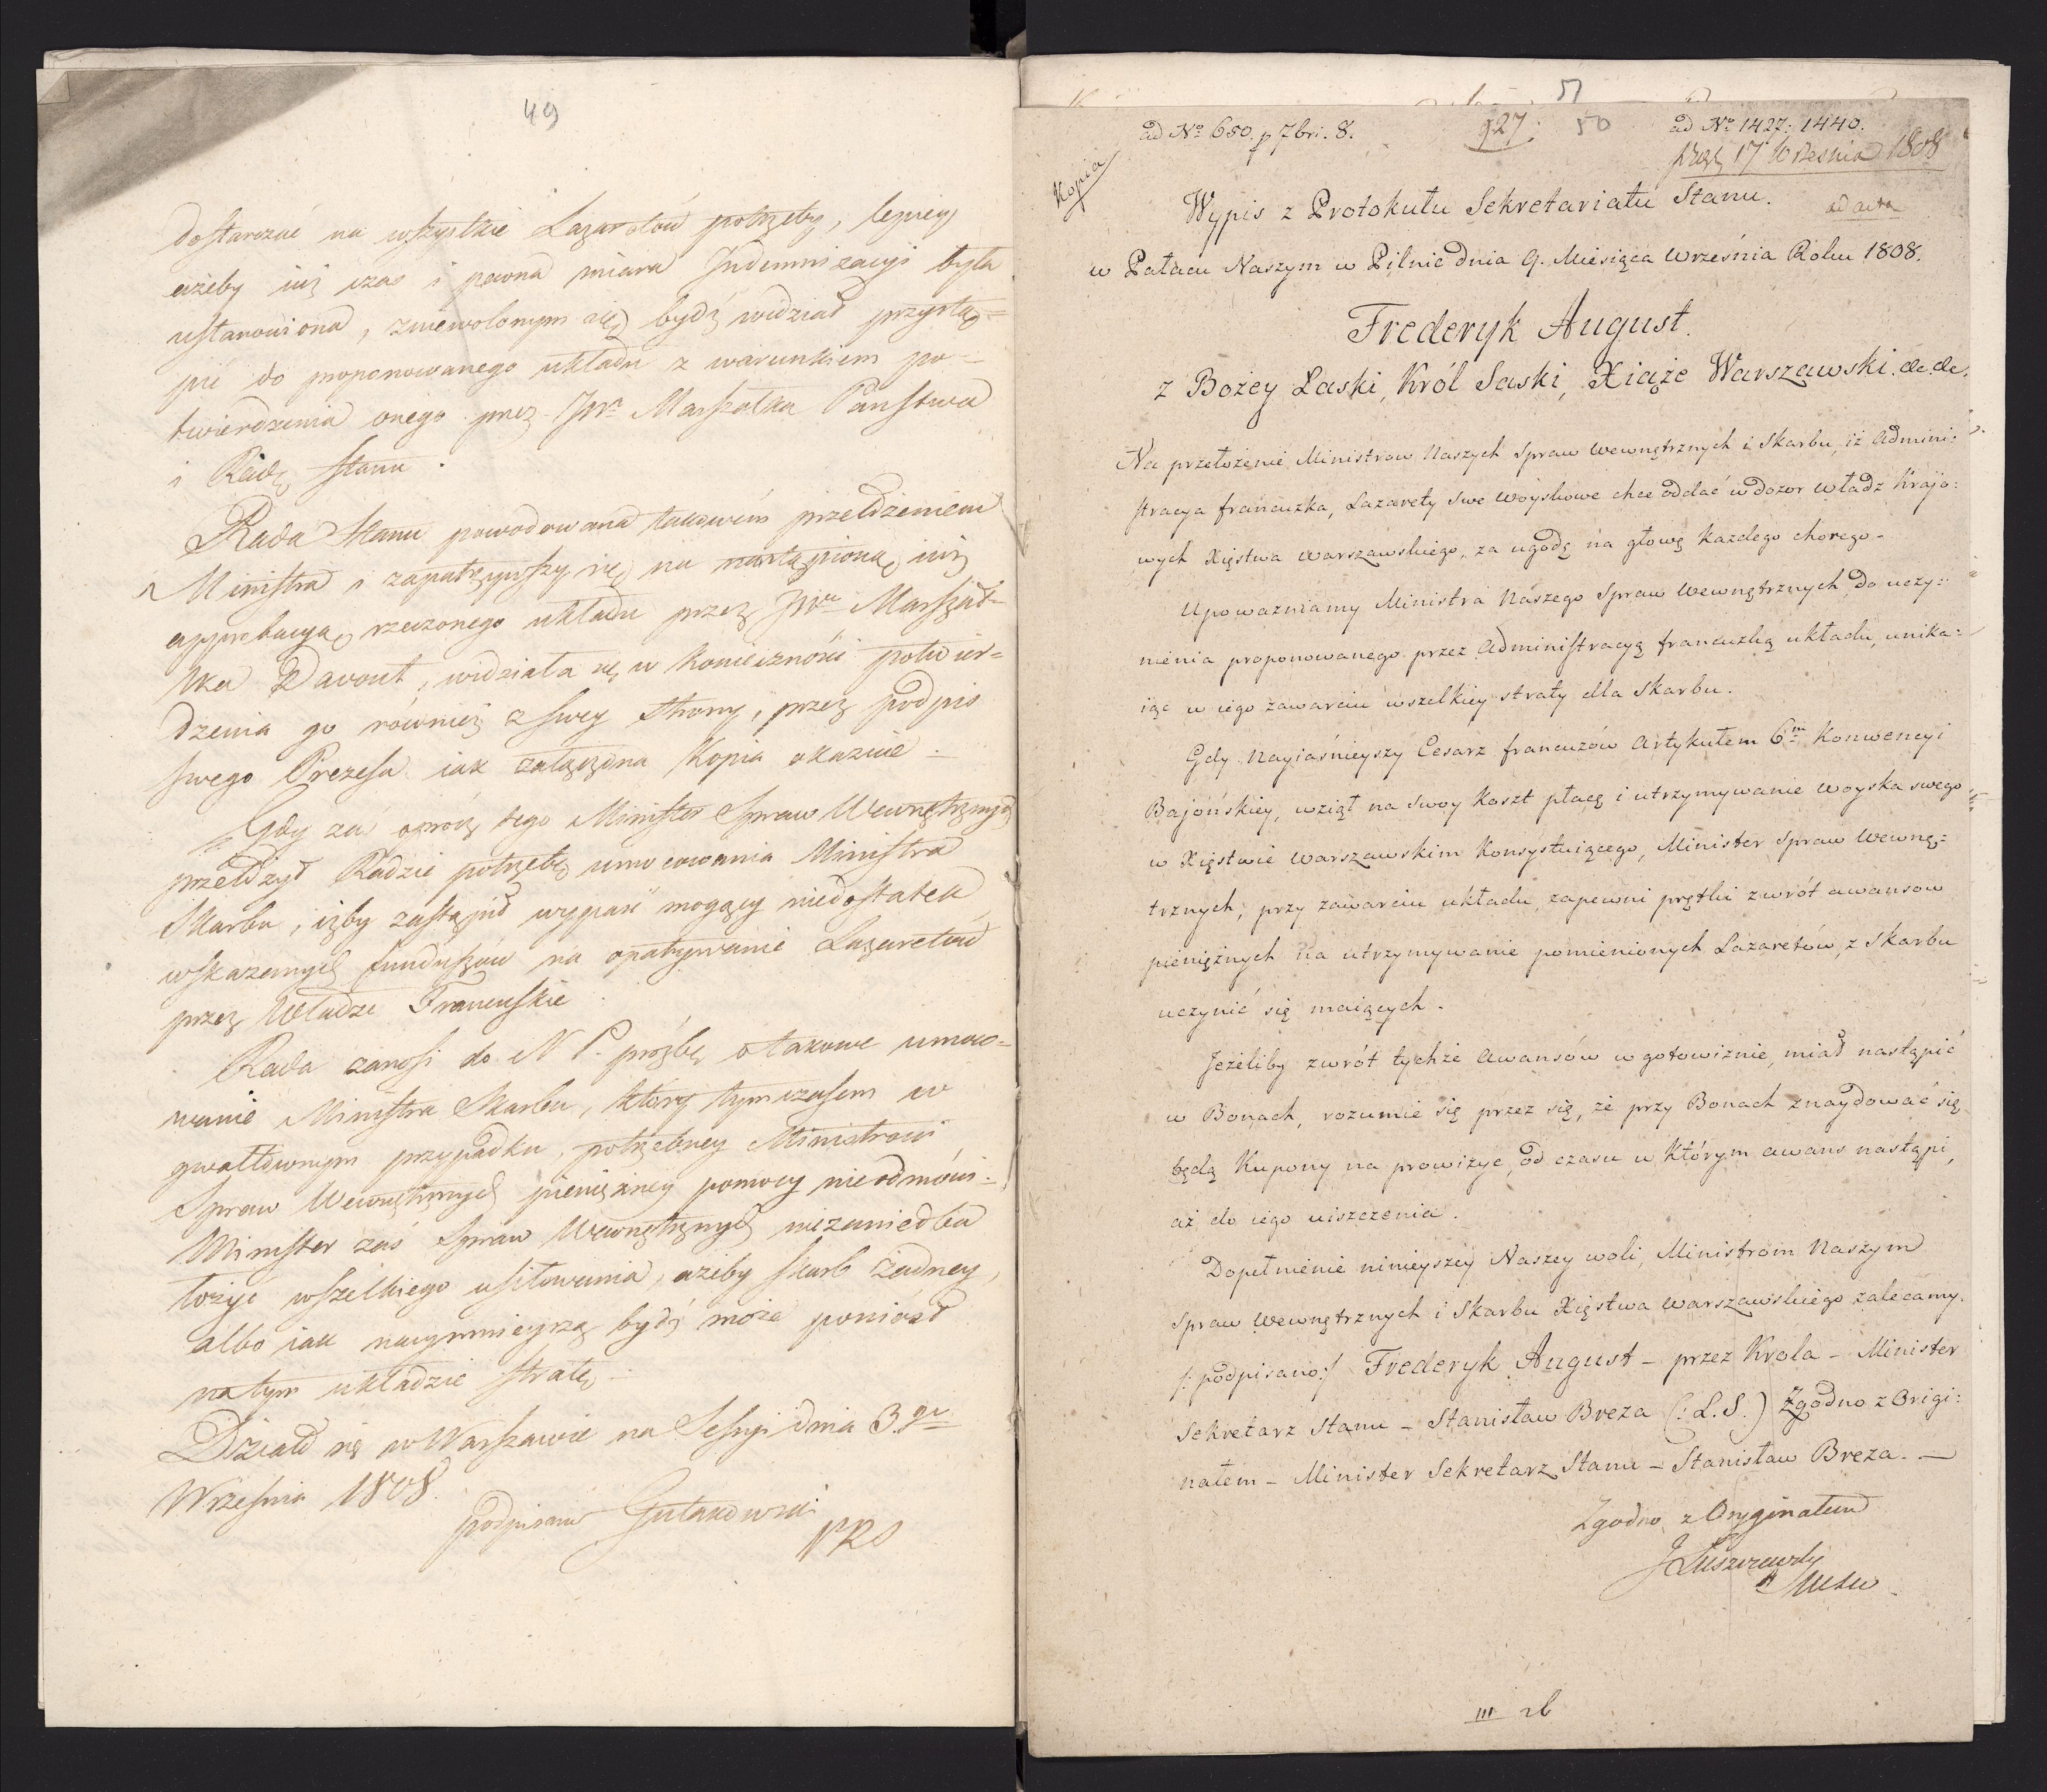 49
dostarczać na wszystkie Lazaretów potrzeby, lepiey
ażeby iuż czas i pewna miara Indemnizacyi była
ustanowiona, zniewolonym się bydź widział przystą=
pić do proponowanego układu z warunkiem po=
twierdzenia onego przez JWº Marszałka Państwa
i Radę Stanu.
Rada Stanu powodowana takowém przełożeniem
Ministra i zapatrzywszy się na nastąpioną iuż
approbacyą rzeczonego układu przez JWº Marszał=
ka Davout, widziała się w konieczności potwier=
dzenia go również z swey strony, przez podpis
swego Prezesa iak załączona Kopia okazuie.
Gdy zaś oprócz tego Minister Spraw Wewnętrznych
przełożył Radzie potrzebę umocowania Ministra
Skarbu, iżby zastąpił wypaść mogący niedostatek
wskazanych funduszów na opatrywanie Lazaretów
przez Władze Francuskie.
Rada zanosi do N. P. prośbę o takowe umoco=
wanie Ministra Skarbu, który tymczasem w
gwałtownym przypadku, potrzebney Ministrowi
Spraw Wewnętrznych pieniężney pomocy nie odmówi.
Minister zaś Spraw Wewnętrznych niezaniedba
łożyć wszelkiego usiłowania, ażeby skarb żadney,
albo iak naymnieyszą bydź może poniósł
na tym układzie stratę.
Działo się w Warszawie na Sessyi dnia 3go
Września 1808.
podpisano Gutakowski
PRS
51
ad Nº 650. p 7bri. 8.
927.
50
ad Nº 1427. 1440.
17 Września 1808
Kopia
ad acta
Wypis z Protokułu Sekretariatu Stanu.
w Pałacu Naszym w Pilnic dnia 9. Miesiąca Września Roku 1808.
Frederyk August.
z Bożey Łaski, Król Saski, Xiąże Warszawski. &c. &c.
Na przełożenie Ministrow Naszych Spraw Wewnętrznych i Skarbu, iż Admini:
stracya francuzka, Lazarety swe woyskowe chce oddać w dozor władz Krajo:
wych Xięstwa Warszawskiego, za ugodę na głowę każdego chorego.
Upoważniamy Ministra Naszego Spraw Wewnętrznych, do uczy:
nienia proponowanego przez Administracyą francuzką układu, unika:
iąc w iego zawarciu wszelkiey straty dla Skarbu.
Gdy Nayiaśnieyszy Cesarz francuzów Artykułem 6m Konwencyi
Bajońskiey, wziął na swoy koszt płacę i utrzymywanie woyska swego
w Xięstwie Warszawskim Konsystuiącego, Minister Spraw Wewnę:
trznych, przy zawarciu układu, zapewni prętki zwrót awansow
pieniężnych na utrzymywanie pomienionych Lazaretów, z Skarbu
uczynić się maiących.
Jeżeliby zwrót tychże awansów w gotowiznie, miał nastąpić
w Bonach, rozumie się przez się, że przy Bonach znaydować się
będą Kupony na prowizye, od czasu w którym awans nastąpi,
aż do iego uiszczenia.
Dopełnienie ninieyszey Naszey woli, Ministrom Naszym
Spraw Wewnętrznych i Skarbu Xięstwa Warszawskiego zalecamy.
/: podpisano :/ Frederyk August – przez Krola – Minister
Sekretarz Stanu – Stanisław Breza (: L. S. ) Zgodno z Origi:
nałem – Minister Sekretarz Stanu – Stanisław Breza. –
Zgodno z Oryginałem
J Łuszczewski
III